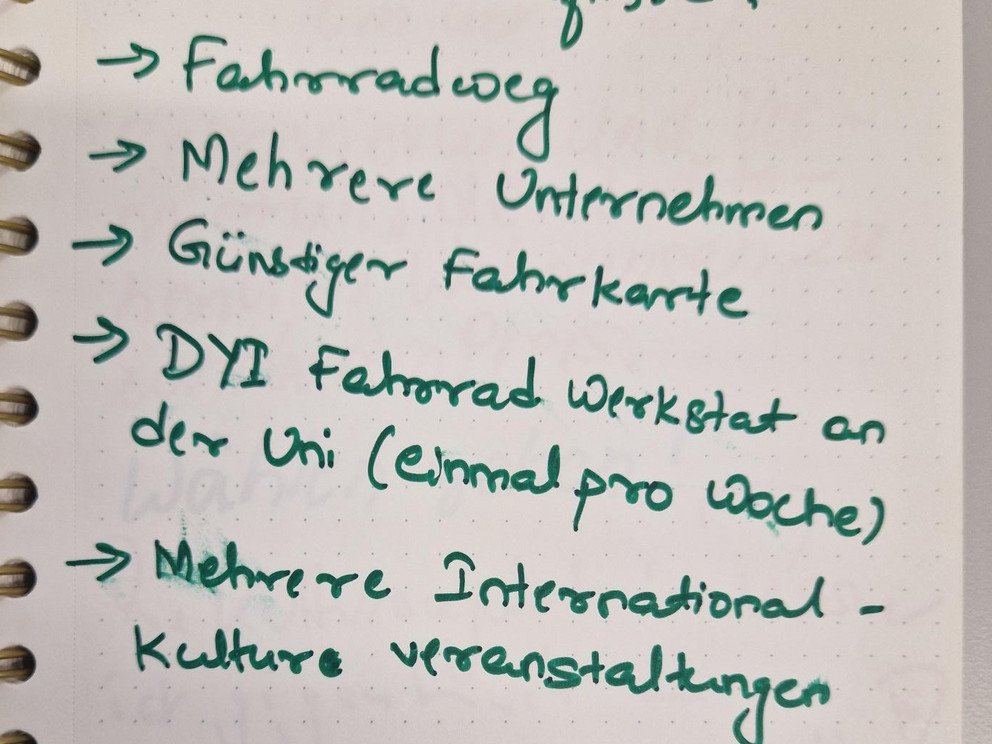 → Fahrradweg
→ Mehrere Unternehmen
→ Günstiger Fahrkarte
→ DYI Fahrrad Werkstat an
der Uni (einmal pro Woche)
→ Mehrere International -
Kulture veranstaltungen